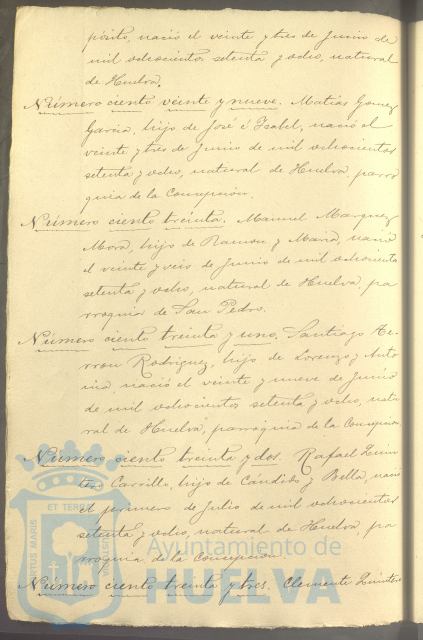 pósito, nació el veinte y tres de Junio de
mil ochocientos setenta y ocho, natural
de Huelva.
Número ciento veinte y nueve. Matias Gomez
Garcia, hijo de José é Isabel, nació el
veinte y tres de Junio de mil ochocientos
setenta y ocho, natural de Huelva, parro
quia de la Concepción.
Número ciento treinta. Manuel Marquez
Mora, hijo de Ramon y Maria, nació
el veinte y seis de Junio de mil ochociento
setenta y ocho, natural de Huelva, pa
rroquia de San Pedro.
Número ciento treinta y uno. Santiago
Rodriguez, hijo de Lorenzo y Anto
nia, nació el veinte y nueve de Junio
de mil ochocientos setenta y ocho, natu
ral de Huelva, parroquia de la Concepcion
Número ciento treinta y dos. Rafael Quin
tero Carrillo, hijo de Cándido y Bella, nació
el primero de Julio de mil ochocientos
setenta y ocho, natural de Huelva, pa
rroquia de la Concepción.
Número ciento treinta y tres. Clemente Quintero
ET TERRE
PORTUS MARIS
Ayuntamiento de
HUELVA